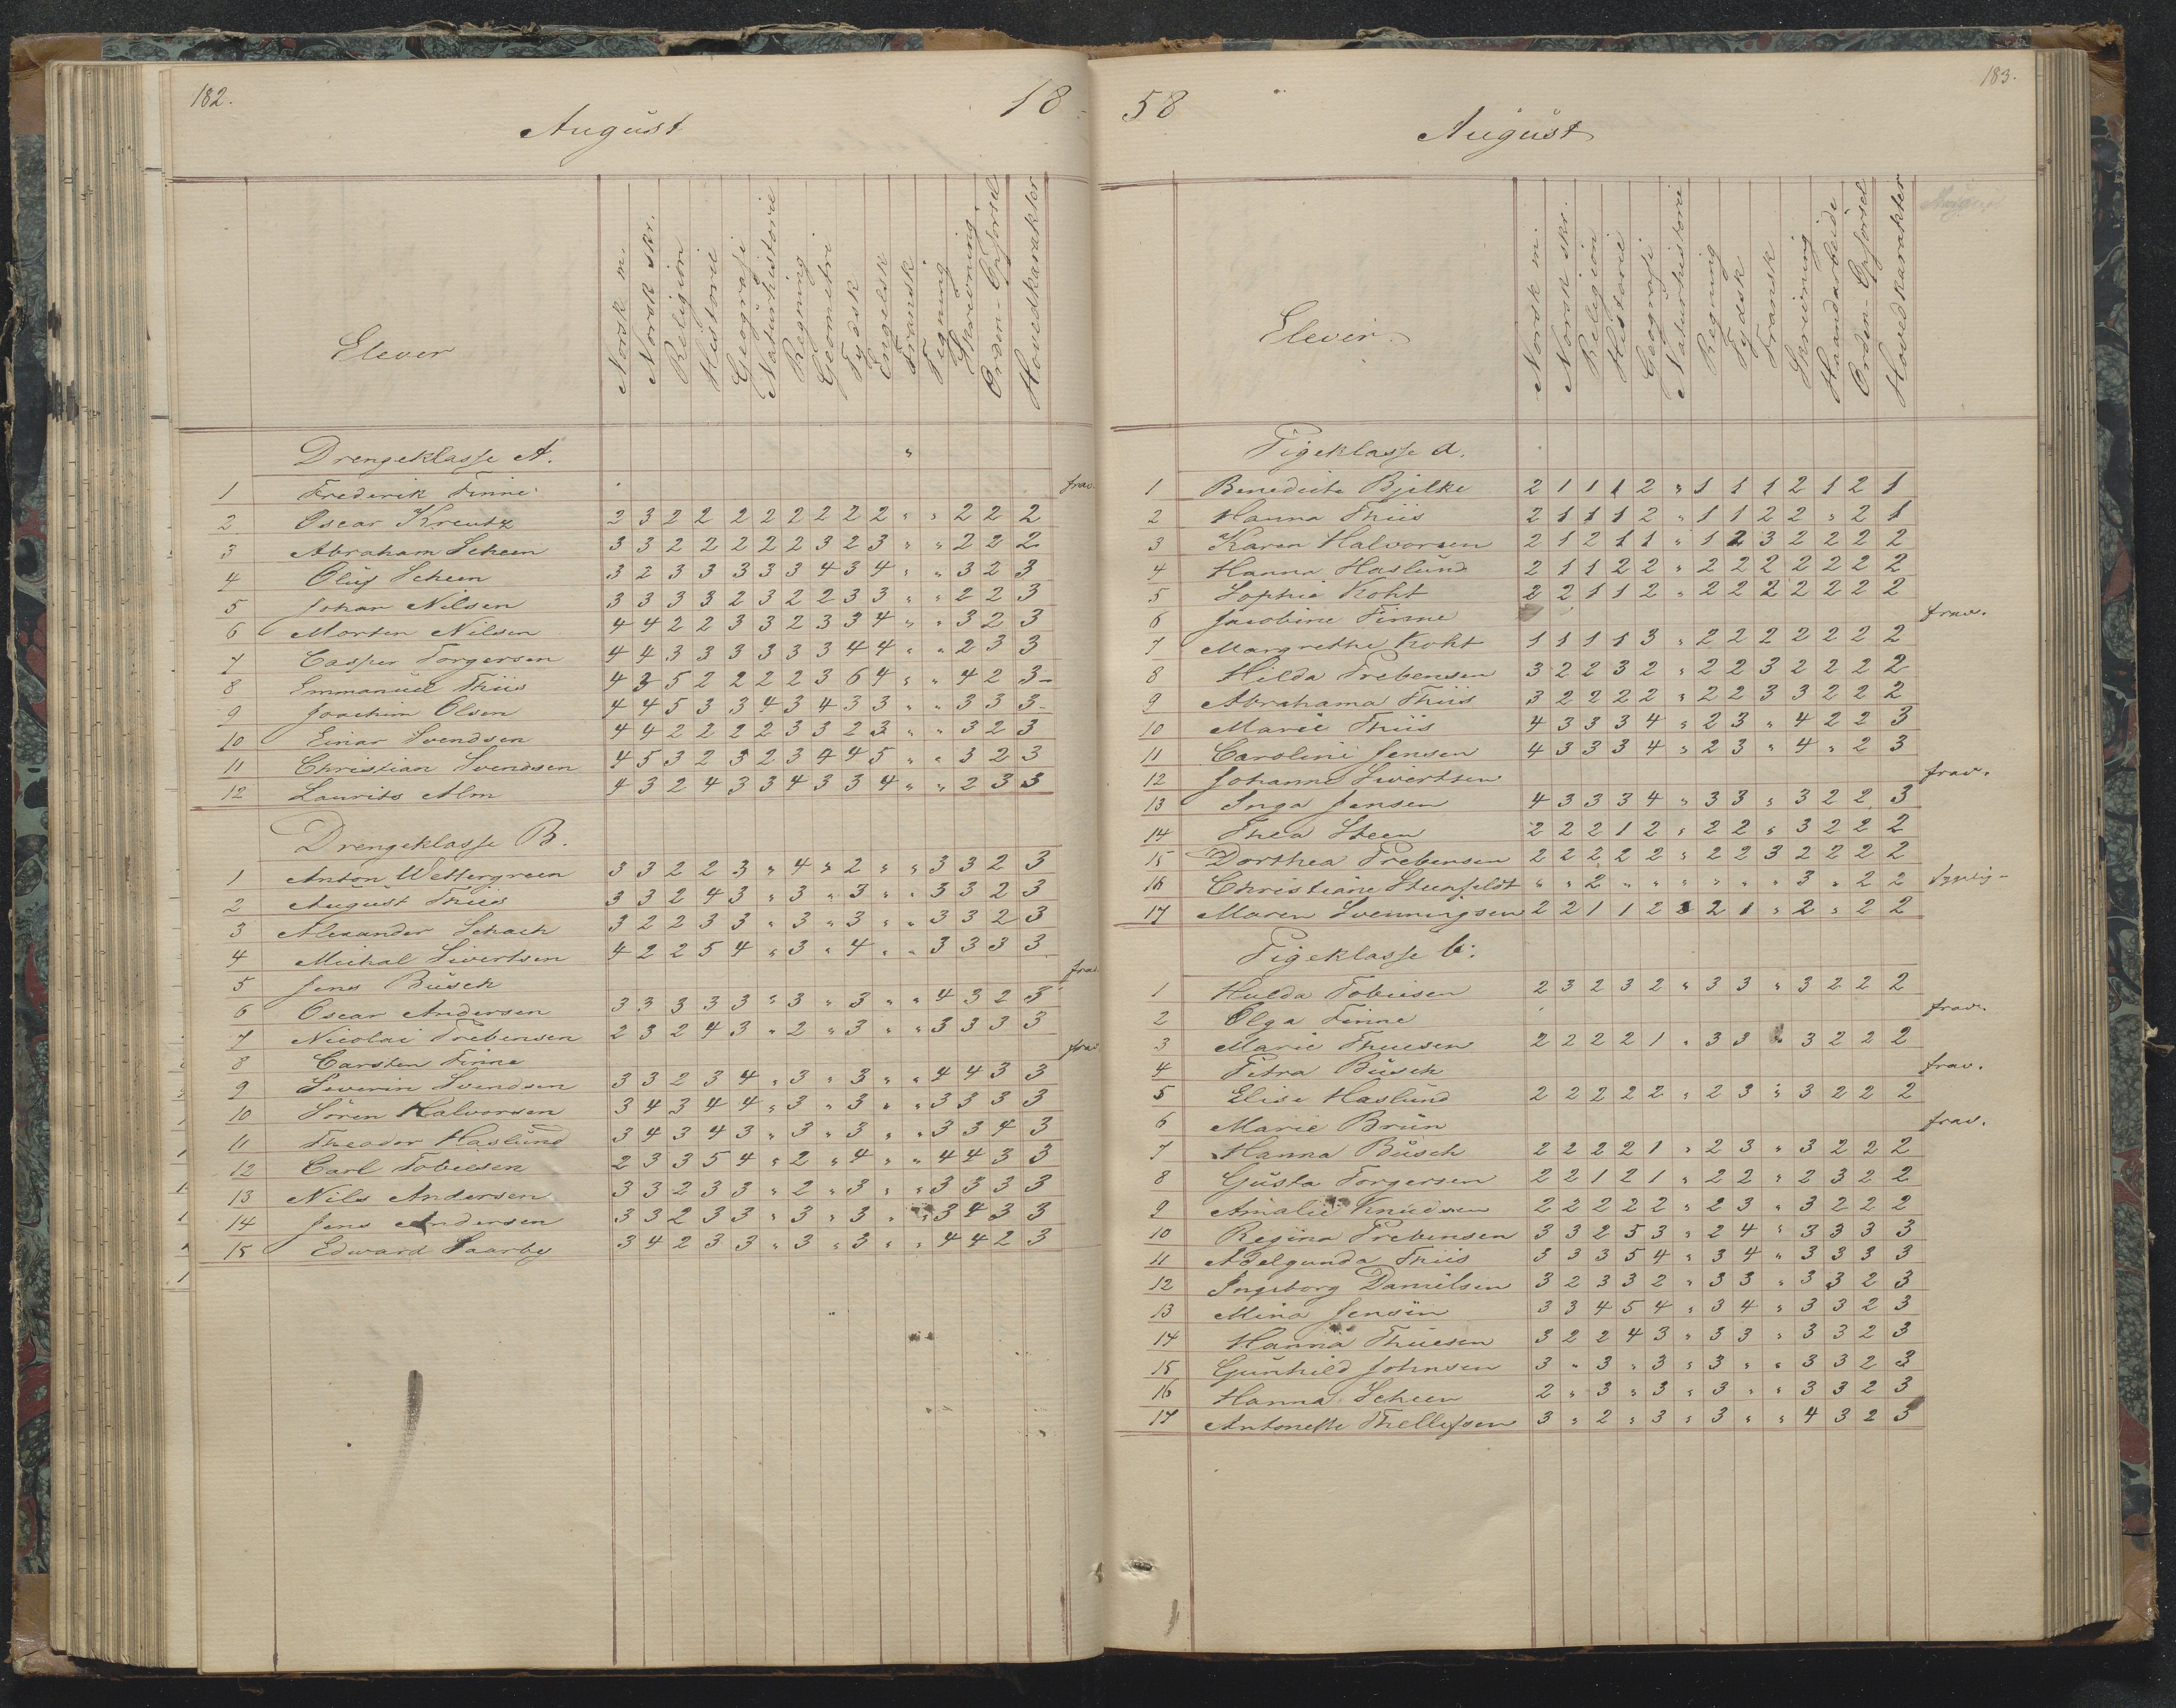 182.
18
August
Elever
Norsk m.
Norsk skr.
Religion
Historie
Geografi
Naturhistorie
Regning
Geometri
Tydsk
Engelsk
Fransk
Tegning
Skrivning
Orden-Opførsel
Hovedkarakter
Drengeklasse A. "
1 Frederik Finne frav.
2 Oscar Kreutz 2 3 2 2 2 2 2 2 2 2 " " 2 2 2
3 Abraham Scheen 3 3 2 2 2 2 2 3 2 3 " " 2 2 2
4 Oluf Scheen 3 2 3 3 3 3 3 4 3 4 " " 3 2 3
5 Johan Nilsen 3 3 3 3 2 3 2 2 3 3 " " 2 2 3
6 Morten Nilsen 4 4 2 2 3 3 2 3 3 4 " " 3 2 3
7 Casper Torgersen 4 4 3 3 3 3 3 3 4 4 " " 2 3 3
8 Emmanuel Thiis 4 3 5 2 2 2 2 3 6 4 " " 4 2 3-
9 Joachim Olsen 4 4 5 3 3 4 3 4 3 3 " " 3 3 3-
10 Einar Svendsen 4 4 2 2 2 2 3 3 2 3 " " 3 2 3
11 Christian Svendsen 4 5 3 2 3 2 3 4 4 5 " " 3 2 3
12 Laurits Alm 4 3 2 4 3 3 4 3 3 4 " " 2 3 3
Drengeklasse B.
1 Anton Wettergreen 3 3 2 2 3 " 4 " 2 " " 3 3 2 3
2 August Thiis 3 3 2 4 3 " 3 " 3 " " 3 3 2 3
3 Alexander Schach 3 2 2 3 3 " 3 " 3 " " 3 3 2 3
4 Michal Sivertsen 4 2 2 5 4 " 3 " 4 " " 3 3 3 3
5 Jens Büsch frav.
6 Oscar Andersen 3 3 3 3 3 " 3 " 3 " " 4 3 2 3
7 Nicolai Prebensen 2 3 2 4 3 " 2 " 3 " " 3 3 3 3
8 Carsten Finne frav.
9 Severin Svendsen 3 3 2 3 4 " 3 " 3 " " 4 4 3 3
10 Søren Halvorsen 3 4 3 4 4 " 3 " 3 " " 3 3 3 3
11 Theodor Haslund 3 4 3 4 3 " 3 " 3 " " 3 3 4 3
12 Carl Tobiesen 2 3 3 5 4 " 2 " 4 " " 4 4 3 3
13 Nils Andersen 3 3 2 3 3 " 2 " 3 " " 3 3 3 3
14 Jens Andersen 3 3 2 3 3 " 3 " 3 " " 3 4 3 3
15 Edward Saarby 3 4 2 3 3 " 3 " 3 " " 4 4 2 3
183.
58
August
Elever.
Norsk m.
Norsk skr.
Religion
Historie
Geografi
Naturhistorie
Regning
Tydsk
Fransk
Skrivning
Haandarbeide
Orden-Opførsel
Hovedkarakter
Pigeklasse A.
1 Benedicte Bjelke 2 1 1 1 2 " 1 1 1 2 1 2 1
2 Hanna Thiis 2 1 1 1 2 " 1 1 2 2 " 2 1
3 Karen Halvorsen 2 1 2 1 1 " 1 2 3 2 2 2 2
4 Hanna Haslund 2 1 1 2 2 " 2 2 2 2 2 2 2
5 Sophie Koht 2 2 1 1 2 " 2 2 2 2 2 2 2
6 Jacobine Finne frav.
7 Margrethe Koht 1 1 1 1 3 " 2 2 2 2 2 2 2
8 Hilda Prebensen 3 2 2 3 2 " 2 2 3 2 2 2 2
9 Abrahama Thiis 3 2 2 2 2 " 2 2 3 3 2 2 2
10 Marie Thiis 4 3 3 3 4 " 2 3 " 4 2 2 3
11 Caroline Jensen 4 3 3 3 4 " 2 3 " 4 " 2 3
12 Johanne Sivertsen frav.
13 Inga Jensen 4 3 3 3 4 " 3 3 " 3 2 2 3
14 Thea Steen 2 2 2 1 2 " 2 2 " 3 2 2 2
15 Dorthea Prebensen 2 2 2 2 2 " 2 2 3 2 2 2 2
16 Christiane Steenfeldt " " 2 " " " " " " 3 " 2 2
17 Maren Svenningsen 2 2 1 1 2 3 2 1 " 2 " 2 2
Pigeklasse b.
1 Hulda Tobiesen 2 3 2 3 2 " 3 3 " 3 2 2 2
2 Olga Finne frav.
3 Marie Thuesen 2 2 2 2 1 " 3 3 " 3 2 2 2
4 Petra Büsch frav.
5 Elise Haslund 2 2 2 2 2 " 2 3 " 3 2 2 2
6 Marie Brün frav.
7 Hanna Büsch 2 2 2 2 1 " 2 3 " 3 2 2 2
8 Gusta Torgersen 2 2 1 2 1 " 2 2 " 2 3 2 2
9 Amalie Knudsen 2 2 2 2 2 " 2 3 " 3 2 2 2
10 Regina Prebensen 3 3 2 5 3 " 2 4 " 3 3 3 3
11 Adelgunda Thiis 3 3 3 5 4 " 3 4 " 3 3 3 3
12 Ingeborg Danielsen 3 2 3 3 2 " 3 3 " 3 3 2 3
13 Mina Jensen 3 3 4 5 4 " 3 4 " 3 3 2 3
14 Hanna Thuesen 3 2 2 4 3 " 3 3 " 3 3 2 3
15 Gunhild Johnsen 3 " 3 " 3 " 3 " " 3 3 2 3
16 Hanna Scheen 2 " 3 " 3 " 3 " " 3 3 2 3
17 Antonette Thellefsen 3 " 2 " 3 " 3 " " 4 3 2 3